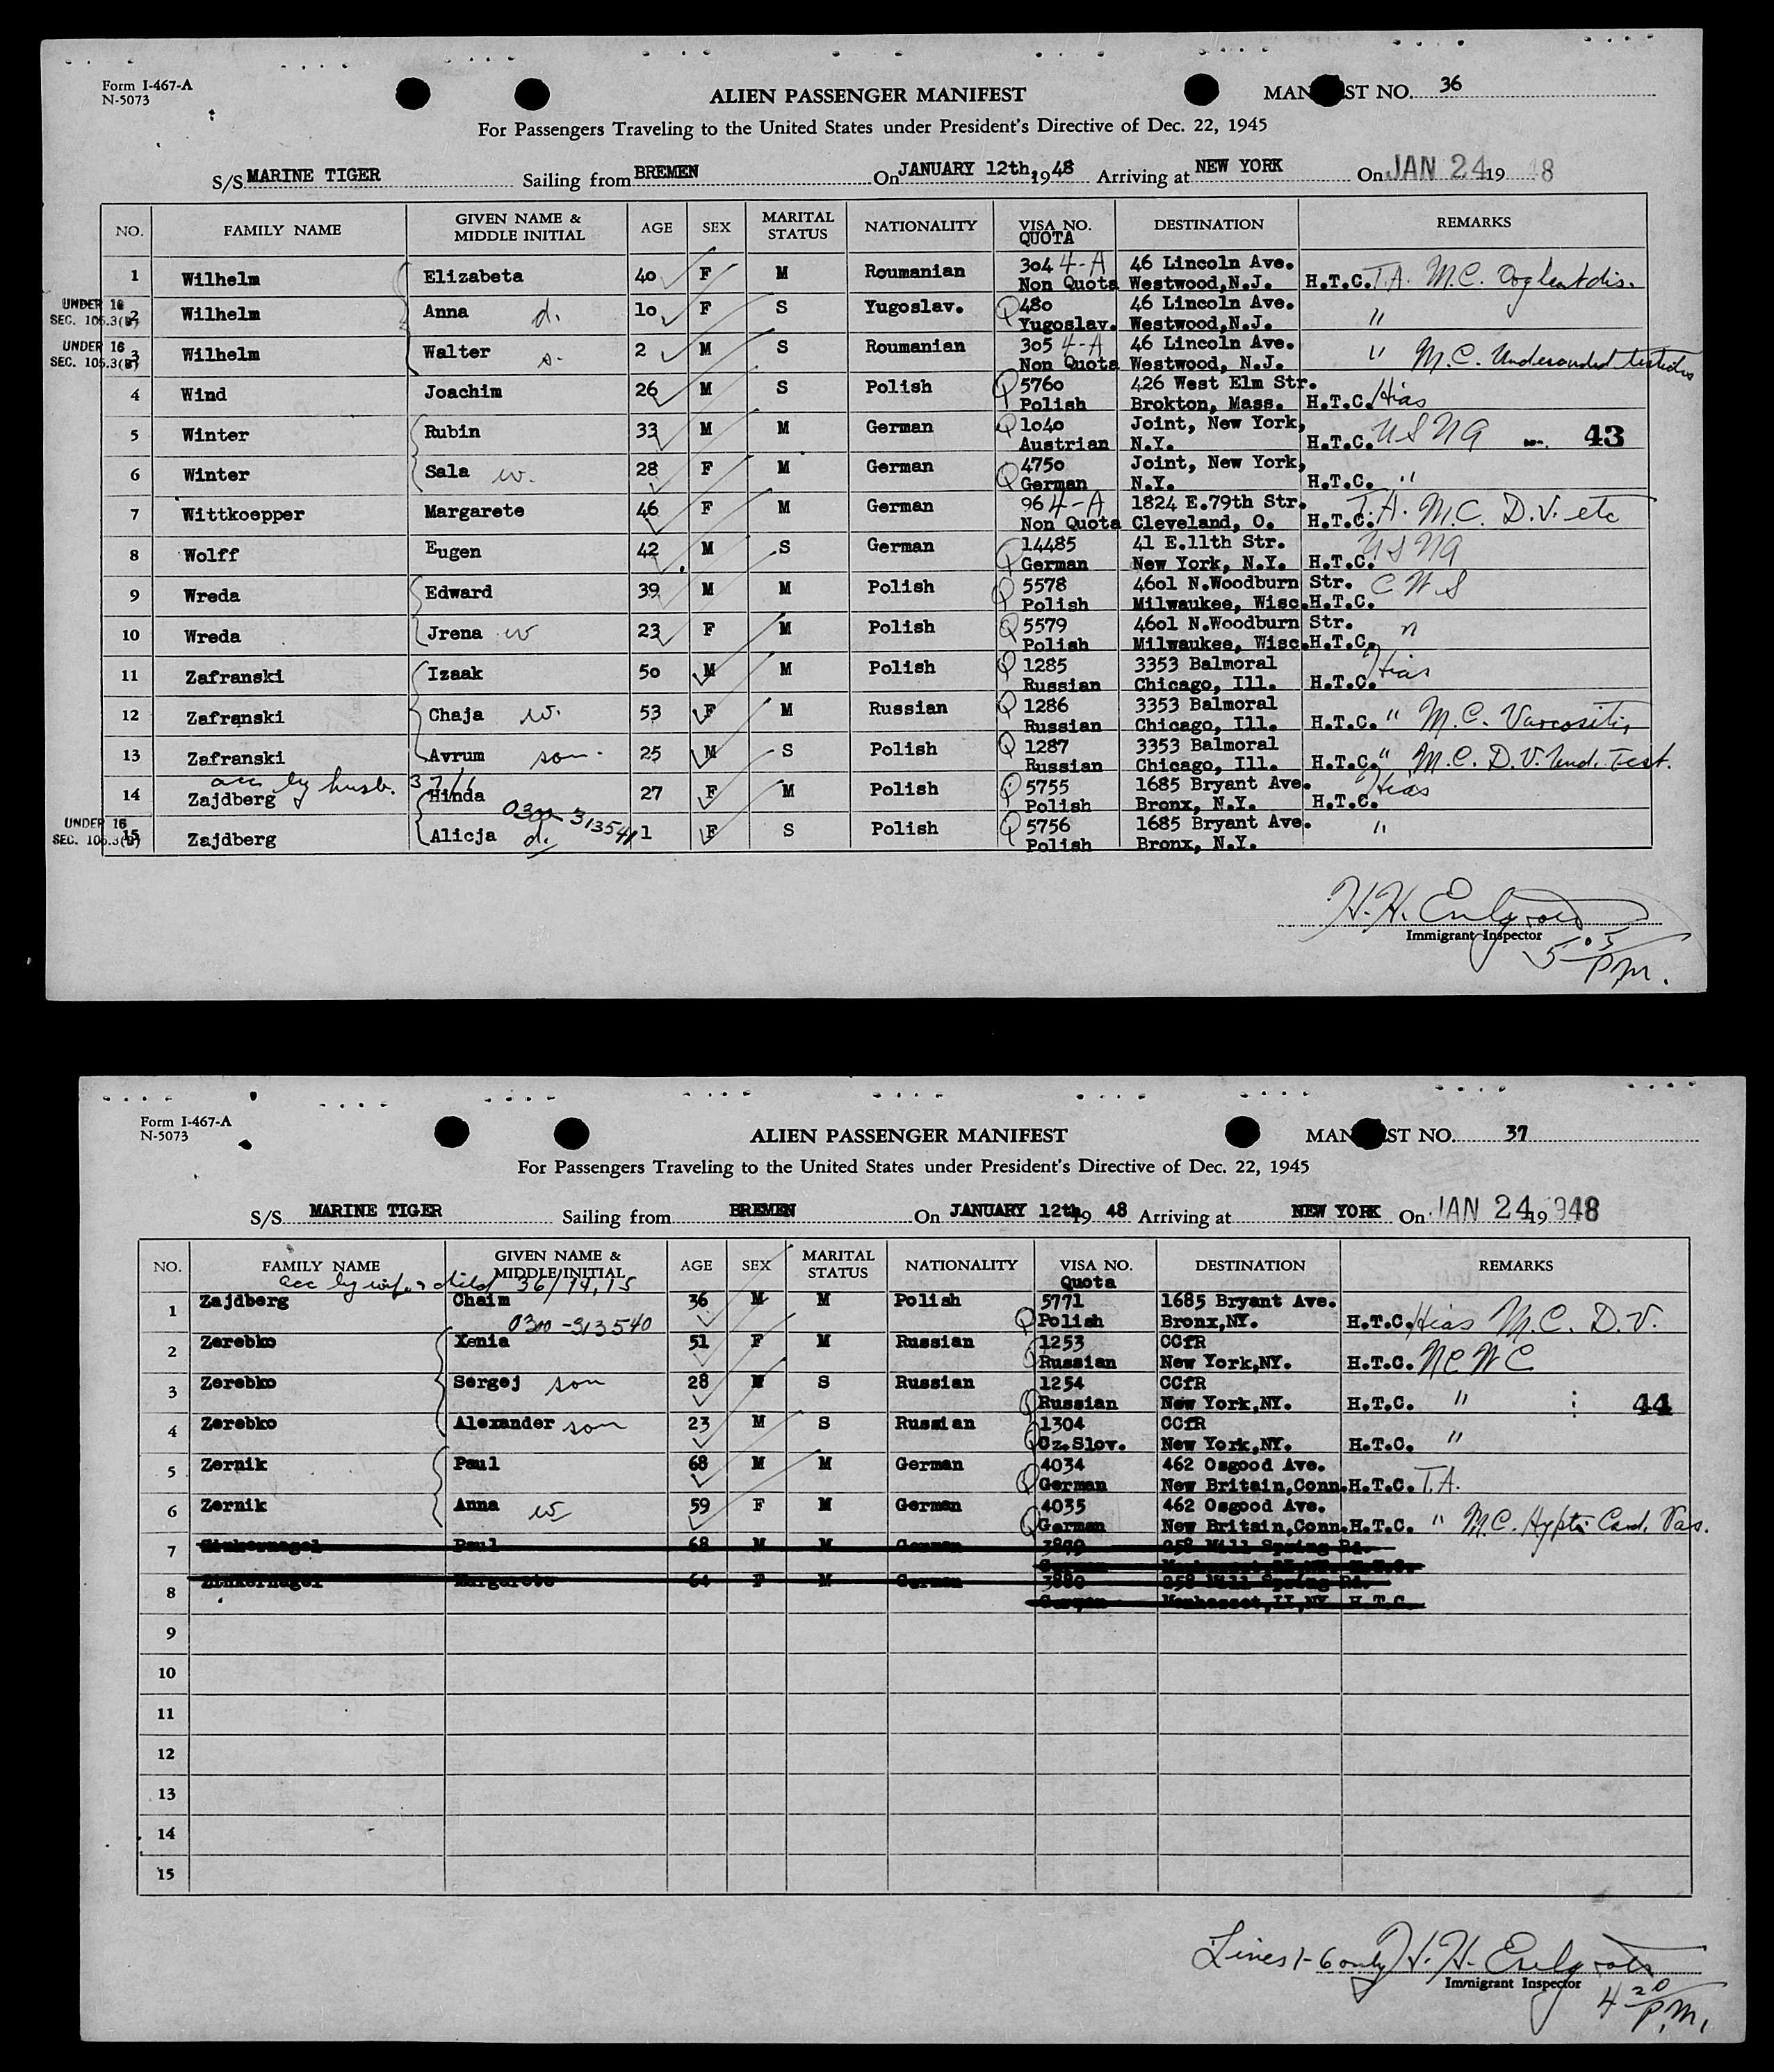 Form I-467-A
N-5073
ALIEN PASSENGER MANIFEST
MAN ST NO. 36
For Passengers Traveling to the United States under President's Directive of Dec. 22, 1945
S/S MARINE TIGER Sailing from BREMEN On JANUARY 12th, 1948 Arriving at NEW YORK On JAN 24 19 48
NO. FAMILY NAME GIVEN NAME & MIDDLE INITIAL AGE SEX MARITAL STATUS NATIONALITY VISA NO. QUOTA DESTINATION REMARKS
1 Wilhelm Elizabeta 40 F M Roumanian 304 4-A 46 Lincoln Ave.
Non Quota Westwood,N.J. H.T.C. T.A. M.C.
UNDER 16
SEC. 105.3(B)
2 Wilhelm Anna d. 10 F S Yugoslav. Q 480 46 Lincoln Ave.
Yugoslav. Westwood,N.J. "
UNDER 16
SEC. 105.3(B)
3 Wilhelm Walter s. 2 M S Roumanian 305 4-A 46 Lincoln Ave.
Non Quota Westwood, N.J. " M.C.
4 Wind Joachim 26 M S Polish Q 5760 426 West Elm Str.
Polish Brokton, Mass. H.T.C. Hias
5 Winter Rubin 33 M M German Q 1o4o Joint, New York,
Austrian N.Y. H.T.C. USNA 43
6 Winter Sala w. 28 F M German Q 4750 Joint, New York,
German N.Y. H.T.C. "
7 Wittkoepper Margarete 46 F M German 96 4-A 1824 E.79th Str.
Non Quota Cleveland, O. H.T.C. T.A. M.C. D.V. etc
8 Wolff Eugen 42 M S German Q 14485 41 E.11th Str.
German New York, N.Y. H.T.C. USNA
9 Wreda Edward 39 M M Polish Q 5578 46o1 N.Woodburn Str.
Polish Milwaukee, Wisc. H.T.C. CWS
10 Wreda Jrena w 23 F M Polish Q 5579 46o1 N.Woodburn Str.
Polish Milwaukee, Wisc. H.T.C. "
11 Zafranski Izaak 50 M M Polish Q 1285 3353 Balmoral
Russian Chicago, Ill. H.T.C. Hias
12 Zafranski Chaja w. 53 F M Russian Q 1286 3353 Balmoral
Russian Chicago, Ill. H.T.C. " M.C.
13 Zafranski Avrum son 25 M S Polish Q 1287 3353 Balmoral
Russian Chicago, Ill. H.T.C. " M.C. D.V. Und. Test.
acc by husb. 37/1
14 Zajdberg Hinda 27 F M Polish Q 5755 1685 Bryant Ave.
Polish Bronx, N.Y. H.T.C. Hias
0300-313541
UNDER 16
SEC. 105.3(B)
15 Zajdberg Alicja d. 1 F S Polish Q 5756 1685 Bryant Ave.
Polish Bronx, N.Y. "
H.H.
Immigrant Inspector
5 05 P.M.
Form I-467-A
N-5073
ALIEN PASSENGER MANIFEST
MAN ST NO. 37
For Passengers Traveling to the United States under President's Directive of Dec. 22, 1945
S/S MARINE TIGER Sailing from BREMEN On JANUARY 12th, 19 48 Arriving at NEW YORK On JAN 24 19 948
NO. FAMILY NAME GIVEN NAME & MIDDLE INITIAL AGE SEX MARITAL STATUS NATIONALITY VISA NO. Quota DESTINATION REMARKS
acc by wife & child 36/14,15
1 Zajdberg Chaim 36 M M Polish 5771 1685 Bryant Ave.
0300-313540 Q Polish Bronx,NY. H.T.C. Hias M.C. D.V.
2 Zerebko Xenia 51 F M Russian 1253 CCfR
Q Russian New York,NY. H.T.C. NCWC
3 Zerebko Sergej son 28 M S Russian 1254 CCfR
Q Russian New York,NY. H.T.C. " 44
4 Zerebko Alexander son 23 M S Russian 1304 CCfR
Q Cz.Slov. New York,NY. H.T.C. "
5 Zernik Paul 68 M M German 4034 462 Osgood Ave.
Q German New Britain,Conn. H.T.C. T.A.
6 Zernik Anna w 59 F M German 4035 462 Osgood Ave.
Q German New Britain,Conn. H.T.C. " M.C. Card. Vas.
7 Zinkernagel Paul 68 M M German 3879 258 Mill Spring Rd.
German
8 Zinkernagel Margarete 64 F M German 3880 258 Mill Spring Rd.
German Manhasset,LI,NY. H.T.C.
9
10
11
12
13
14
15
Lines 1-6 only H.H.
Immigrant Inspector
4 20 P.M.